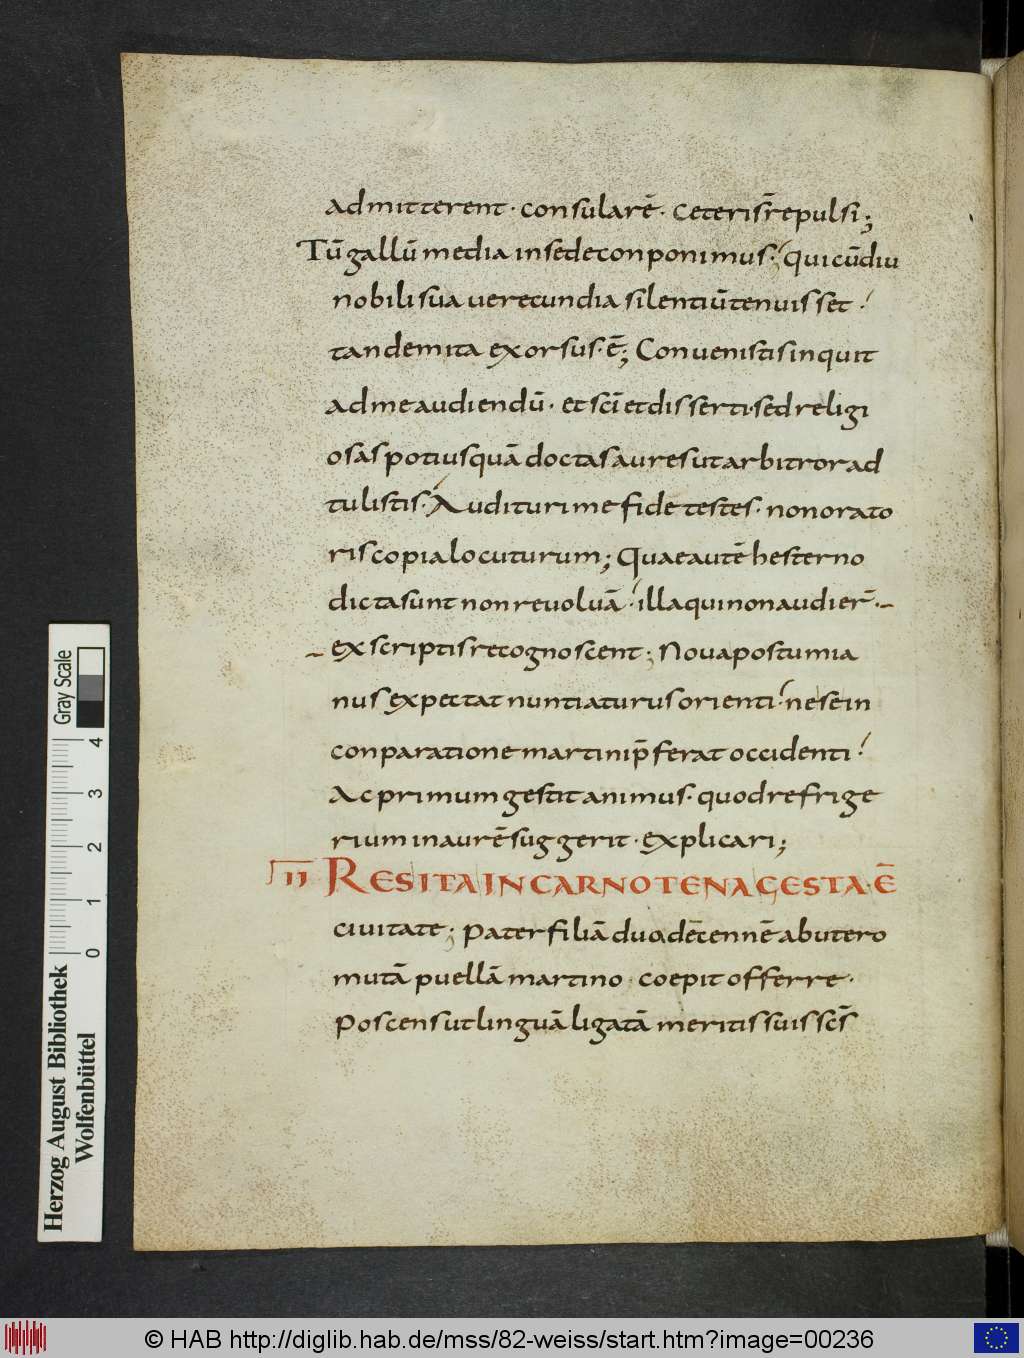 admitterent · consularē · ceteris r̄epulsi;
Tū gallū media in sede conponimus · qui cū diu
nobili sua uerecundia silentiū tenuisset
tandem ita exorsus · ē; Conuenistis inquit
ad me audiendū · et sc̄i et disserti · sed religi
osas potius quā doctas aures ut arbitror ad
tulistis · Audituri me fide testes · non orato
ris copia locuturum; Quae autē hesterno
dicta sunt non reuoluā · illa qui non audier̄ ·
ex scriptis recognoscent; Noua postumia
nus expectat nuntiaturus orienti · ne se in
conparatione martini p̄ferat occidenti
Ac primum gestit animus · quod refrige
rium in aurē suggerit · explicari;
II RES ITA IN CARNOTENA GESTA · Ē
ciuitate; pater filiā duodēcennē ab utero
mutā puellā martino · coepit offerre ·
Poscens ut linguā ligatā meritis suis sc̄s
Herzog August Bibliothek
Wolfenbüttel
Gray Scale
0 1 2 3 4
© HAB http://diglib.hab.de/mss/82-weiss/start.htm?image=00236